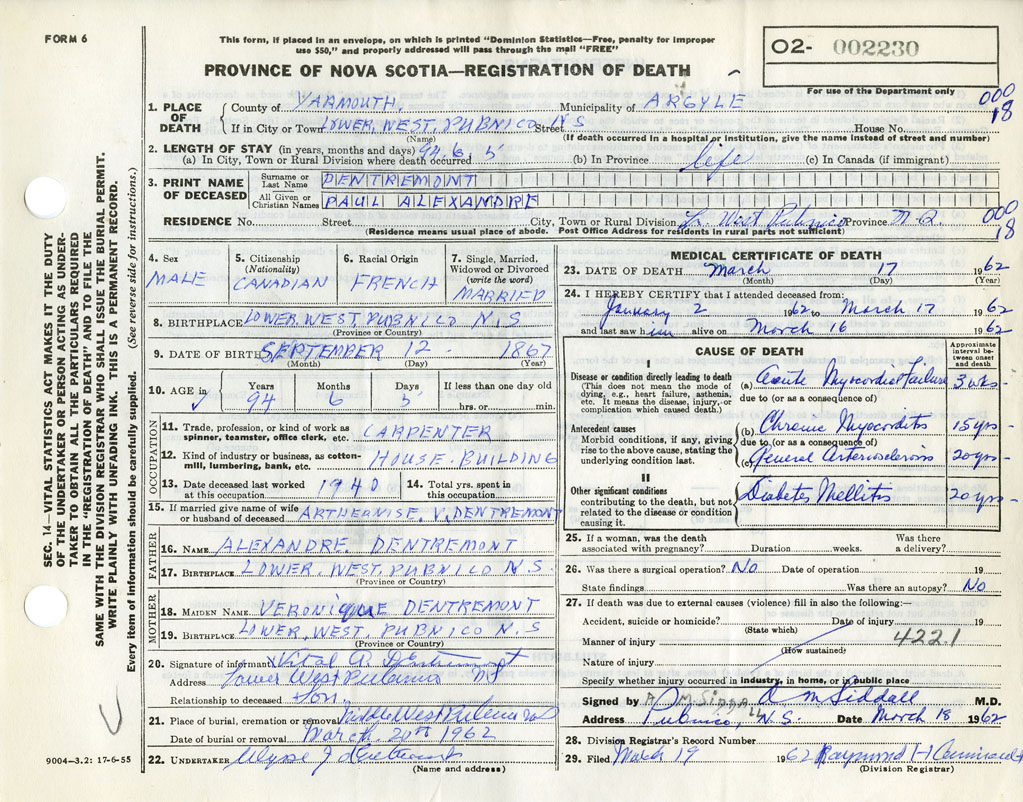 FORM 6
This form, if placed in an envelope, on which is printed "Dominion Statistics—Free, penalty for improper
use $50," and properly addressed will pass through the mail "FREE"
PROVINCE OF NOVA SCOTIA—REGISTRATION OF DEATH
02- 002230
For use of the Department only
000
18
1. PLACE OF DEATH County of YARMOUTH. Municipality of ARGYLE
If in City or Town LOWER. WEST. PUBNICO N S Street House No.
(Name) (If death occurred in a hospital or institution, give the name instead of street and number)
2. LENGTH OF STAY (in years, months and days) 94 6 5
(a) In City, Town or Rural Division where death occurred (b) In Province life (c) In Canada (if immigrant)
3. PRINT NAME OF DECEASED
Surname or Last Name DENTREMONT
All Given or Christian Names PAUL ALEXANDRE
000
18
RESIDENCE No. Street City, Town or Rural Division Lr. West Pubnico Province
(Residence means usual place of abode. Post Office Address for residents in rural parts not sufficient)
4. Sex MALE
5. Citizenship (Nationality) CANADIAN
6. Racial Origin FRENCH
7. Single, Married, Widowed or Divorced (write the word) MARRIED
8. BIRTHPLACE LOWER. WEST. PUBNICO N. S
(Province or Country)
9. DATE OF BIRTH SEPTEMBER 12 - 1867
(Month) (Day) (Year)
10. AGE in ✓ Years 94 Months 6 Days 5 If less than one day old hrs. or min.
OCCUPATION
11. Trade, profession, or kind of work as spinner, teamster, office clerk, etc. CARPENTER
12. Kind of industry or business, as cotton-mill, lumbering, bank, etc. HOUSE. BUILDING
13. Date deceased last worked at this occupation 1940
14. Total yrs. spent in this occupation
15. If married give name of wife or husband of deceased ARTHEANISE. V. DENTREMONT
FATHER
16. NAME ALEXANDRE. DENTREMONT
17. BIRTHPLACE LOWER. WEST. PUBNICO N S.
(Province or Country)
MOTHER
18. MAIDEN NAME VERONIQUE DENTREMONT
19. BIRTHPLACE LOWER, WEST. PUBNICO N. S
(Province or Country)
20. Signature of informant Vital A. D'Entremont
Address Lower West Pubnico NS
Relationship to deceased Son
21. Place of burial, cremation or removal Middle West Pubnico
Date of burial or removal March. 20th 1962
22. UNDERTAKER Ulysse J d'Entremont
(Name and address)
MEDICAL CERTIFICATE OF DEATH
23. DATE OF DEATH March 17 1962
(Month) (Day) (Year)
24. I HEREBY CERTIFY that I attended deceased from:
January 2 1962 to March 17 1962
and last saw him alive on March 16 1962
CAUSE OF DEATH
Approximate interval between onset and death
I
Disease or condition directly leading to death
(This does not mean the mode of dying, e.g., heart failure, asthenia, etc. It means the disease, injury, or complication which caused death.)
(a) Acute Myocardial Failure 3 wks -
due to (or as a consequence of)
Antecedent causes
Morbid conditions, if any, giving rise to the above cause, stating the underlying condition last.
(b) Chronic Myocarditis 15 yrs -
due to (or as a consequence of)
(c) General Arteriosclerosis 20 yrs -
II
Other significant conditions
contributing to the death, but not related to the disease or condition causing it.
Diabetes Mellitis 20 yrs -
25. If a woman, was the death associated with pregnancy? Duration weeks. Was there a delivery?
26. Was there a surgical operation? No Date of operation 19
State findings Was there an autopsy? No
27. If death was due to external causes (violence) fill in also the following:—
Accident, suicide or homicide? Date of injury 19
(State which)
Manner of injury 422.1
(How sustained)
Nature of injury
Specify whether injury occurred in industry, in home, or in public place
Signed by A. M. SIDDALL A M Siddall M.D.
Address Pubnico, N.S. Date March 18 1962
28. Division Registrar's Record Number
29. Filed March 19 1962 Raymond H
(Division Registrar)
SEC. 14—VITAL STATISTICS ACT MAKES IT THE DUTY
OF THE UNDERTAKER OR PERSON ACTING AS UNDER-
TAKER TO OBTAIN ALL THE PARTICULARS REQUIRED
IN THE "REGISTRATION OF DEATH" AND TO FILE THE
SAME WITH THE DIVISION REGISTRAR WHO SHALL ISSUE THE BURIAL PERMIT.
WRITE PLAINLY WITH UNFADING INK. THIS IS A PERMANENT RECORD.
Every item of information should be carefully supplied. (See reverse side for instructions.)
9004—3.2: 17-6-55